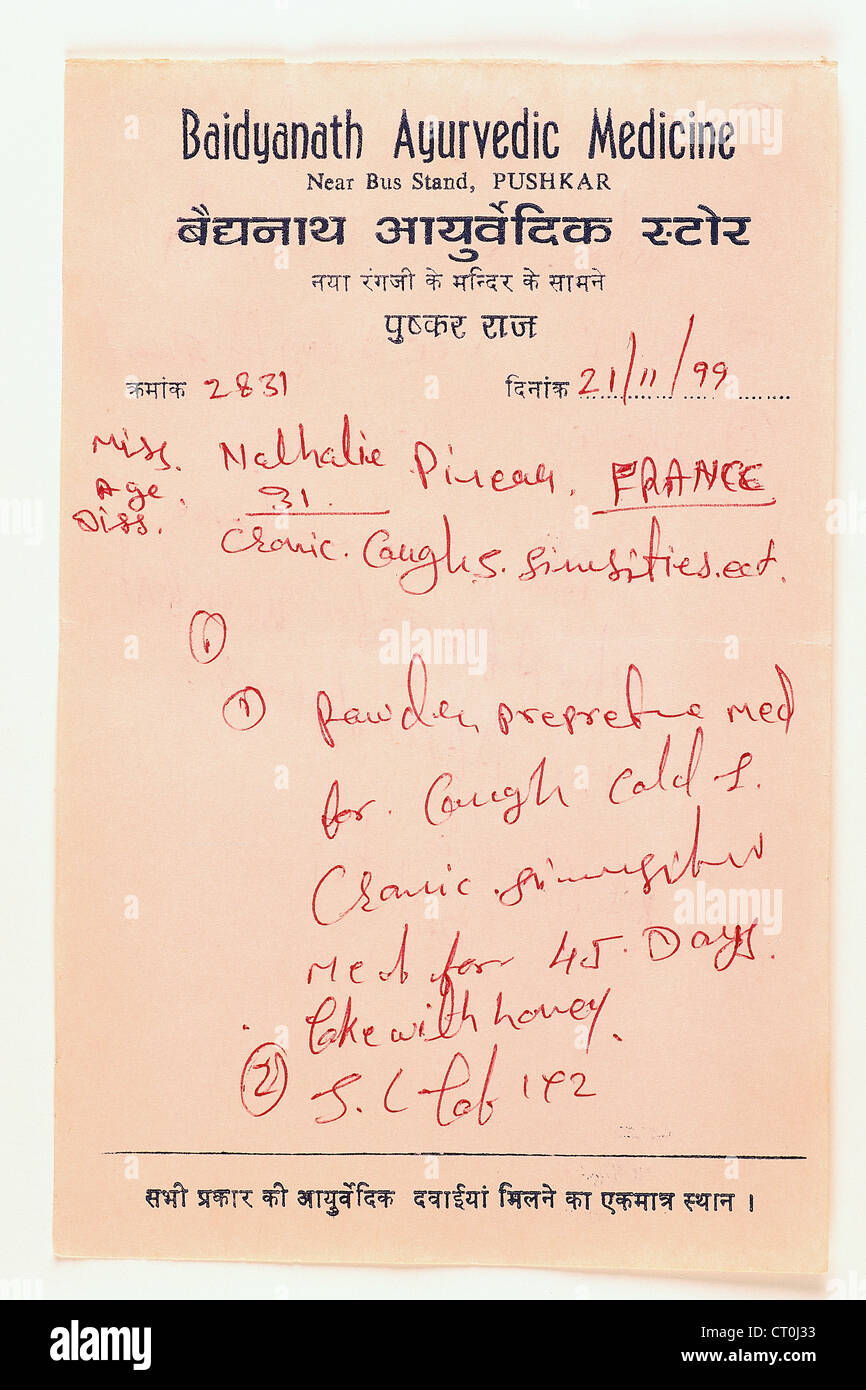 Baidyanath Ayurvedic Medicine
Near Bus Stand, PUSHKAR
बैद्यनाथ आयुर्वेदिक स्टोर
नया रंगजी के मन्दिर के सामने
पुष्कर राज
क्रमांक 2831 दिनांक 21/11/99
Miss. Nathalie FRANCE
Age. 31.
Diss. Cronic. Coughs. sinusities. ect.
1
1 powder, med
for. Cough Cold
Cronic.
Med for 45. Days.
take with honey.
2 S. C tab
सभी प्रकार की आयुर्वेदिक दवाईयां मिलने का एकमात्र स्थान ।
alamy
Image ID: CT0J33
www.alamy.com